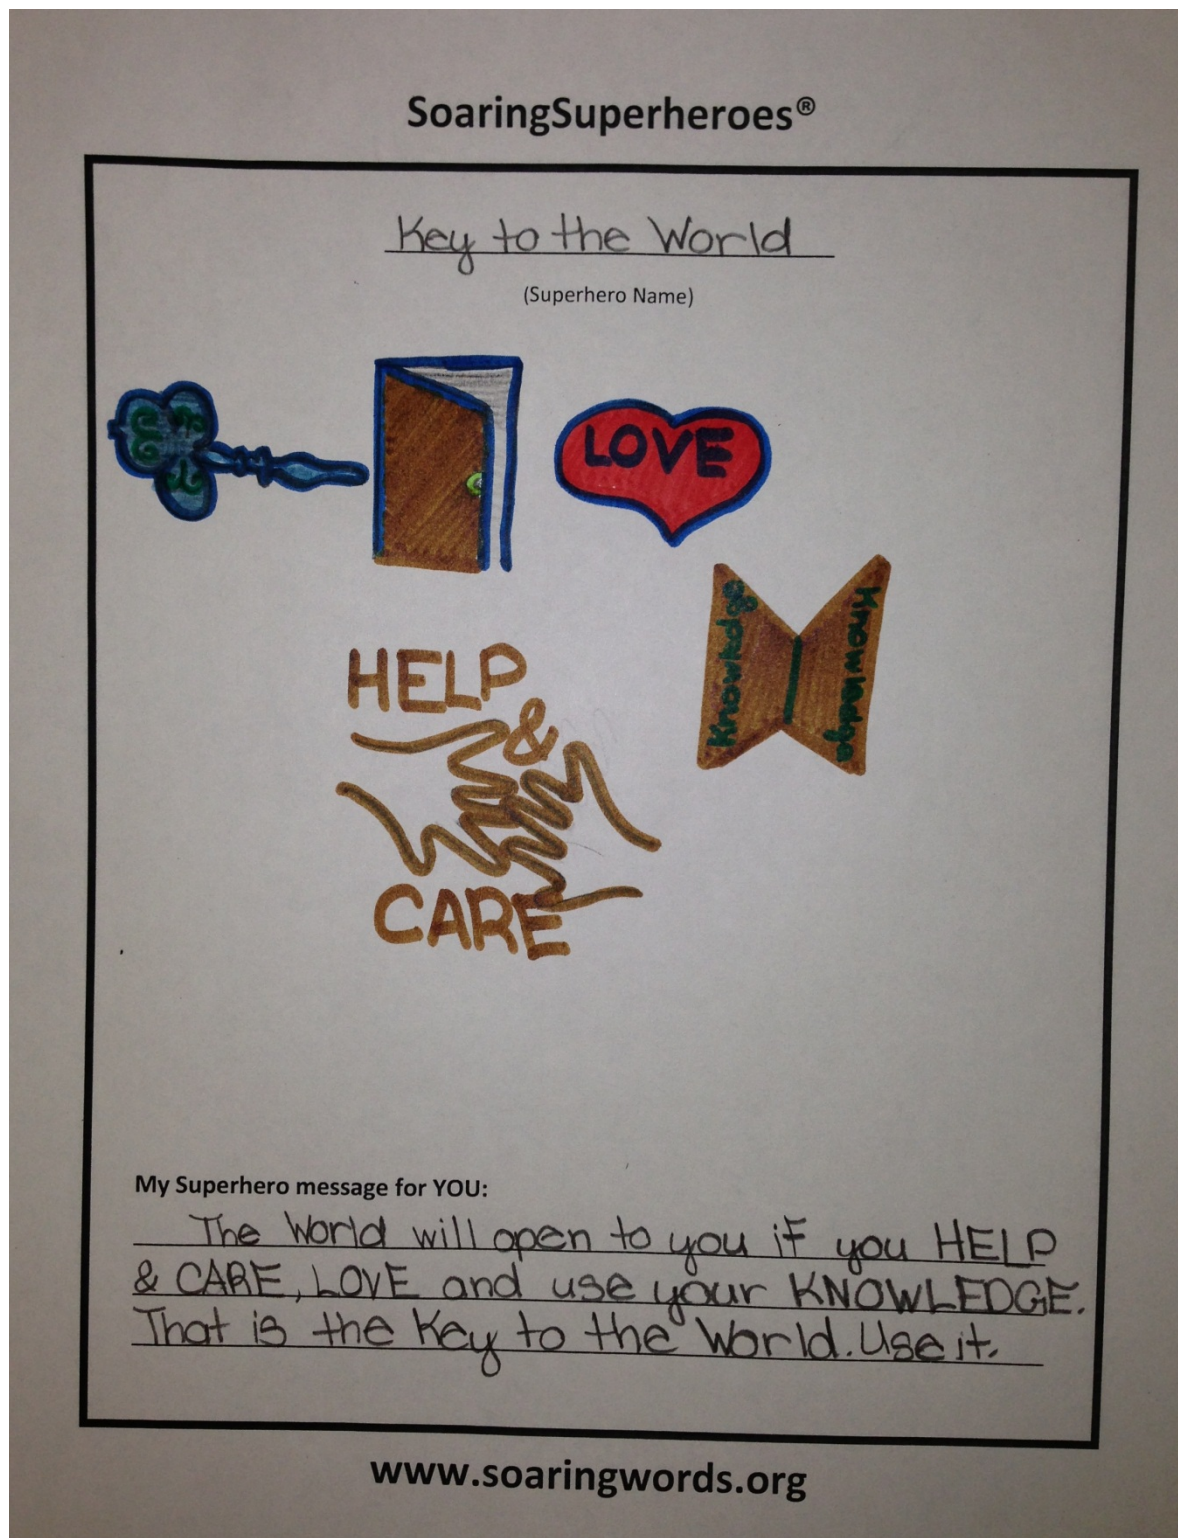 SoaringSuperheroes®
Key to the World
(Superhero Name)
LOVE
Knowledge
Knowledge
HELP
&
CARE
My Superhero message for YOU:
The World will open to you if you HELP
& CARE, LOVE and use your KNOWLEDGE.
That is the Key to the World. Use it.
www.soaringwords.org